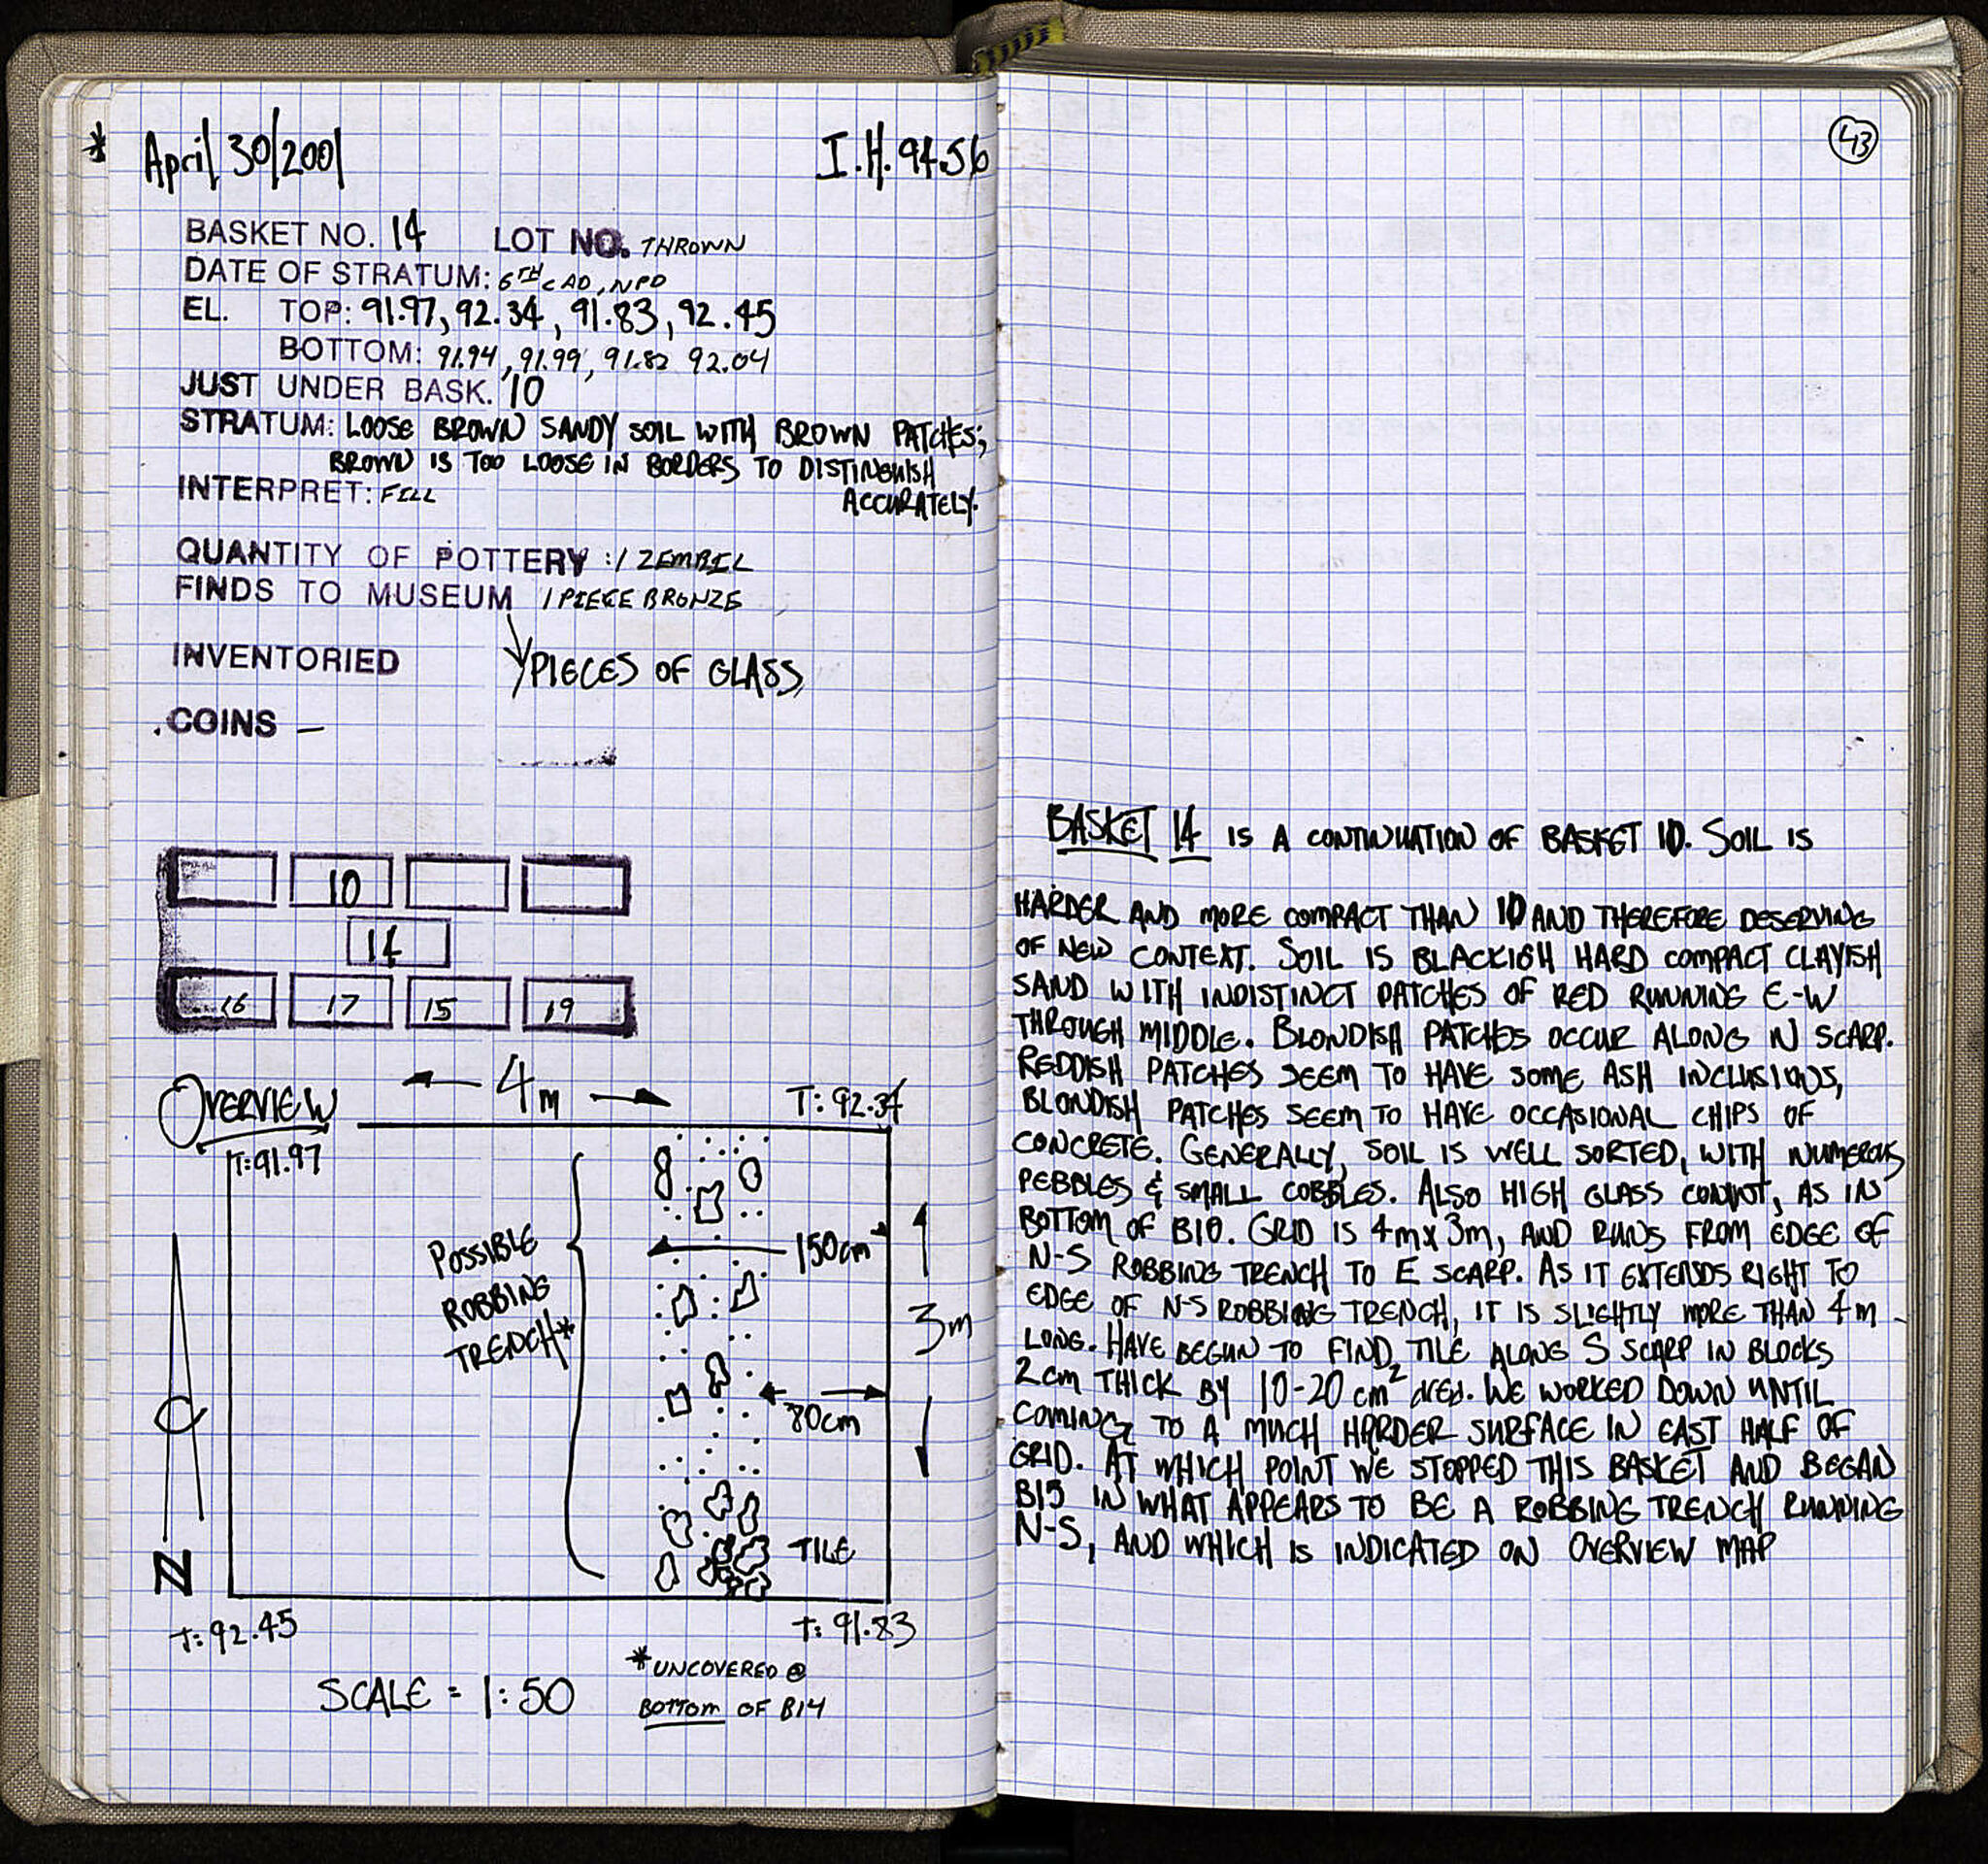 * April/30/2001 I.H. 94.56
BASKET NO. 14 LOT NO. THROWN
DATE OF STRATUM: 6TH C AD, NPD
EL. TOP: 91.97, 92.34, 91.83, 92.45
BOTTOM: 91.94, 91.99, 91.82 92.04
JUST UNDER BASK. 10
STRATUM: LOOSE BROWN SANDY SOIL WITH BROWN PATCHES;
BROWN IS TOO LOOSE IN BORDERS TO DISTINGUISH
ACCURATELY.
INTERPRET: FILL
QUANTITY OF POTTERY : 1 ZEMBIL
FINDS TO MUSEUM 1 PIECE BRONZE
INVENTORIED PIECES OF GLASS,
COINS –
10
14
16 17 15 19
OVERVIEW 4m T: 92.34
T: 91.97
POSSIBLE
ROBBING
TRENCH*
150cm
3m
80cm
TILE
N
T: 92.45 T: 91.83
SCALE = 1:50
*UNCOVERED @
BOTTOM OF B14
43
BASKET 14 IS A CONTINUATION OF BASKET 10. SOIL IS
HARDER AND MORE COMPACT THAN 10 AND THEREFORE DESERVING
OF NEW CONTEXT. SOIL IS BLACKISH HARD COMPACT CLAYISH
SAND WITH INDISTINCT PATCHES OF RED RUNNING E-W
THROUGH MIDDLE. BLONDISH PATCHES OCCUR ALONG N SCARP.
REDDISH PATCHES SEEM TO HAVE SOME ASH INCLUSIONS,
BLONDISH PATCHES SEEM TO HAVE OCCASIONAL CHIPS OF
CONCRETE. GENERALLY, SOIL IS WELL SORTED, WITH NUMEROUS
PEBBLES & SMALL COBBLES. ALSO HIGH GLASS CONTENT, AS IN
BOTTOM OF B10. GRID IS 4m x 3m, AND RUNS FROM EDGE OF
N-S ROBBING TRENCH TO E SCARP. AS IT EXTENDS RIGHT TO
EDGE OF N-S ROBBING TRENCH, IT IS SLIGHTLY MORE THAN 4m
LONG. HAVE BEGUN TO FIND TILE ALONG S SCARP IN BLOCKS
2cm THICK BY 10-20 cm² area. WE WORKED DOWN UNTIL
COMING TO A MUCH HARDER SURFACE IN EAST HALF OF
GRID. AT WHICH POINT WE STOPPED THIS BASKET AND BEGAN
B15 IN WHAT APPEARS TO BE A ROBBING TRENCH RUNNING
N-S, AND WHICH IS INDICATED ON OVERVIEW MAP